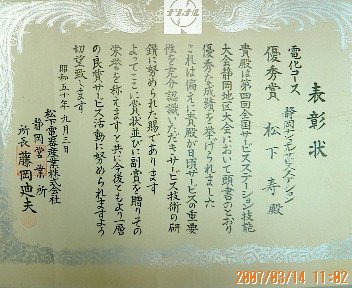 ナショナル
表彰状
電化コース
静岡ナショナルサービスステーション
優秀賞 松下 寿 殿
貴殿は第四回全国サービスステーション技能
大会静岡地区大会において頭書のとおり
優秀な成績を挙げられました
これは偏えに貴殿が日頃サービスの重要
性を充分認識いただきサービス技術の研
鑽に努められた賜であります
よってここに賞状並びに副賞を贈りその
栄誉を称えますと共に今後ともより一層
の良質サービス活動に努められますよう
切望致します
昭和五十年九月三日
松下電器産業株式会社
静岡営業所
所長 藤岡迪夫
2007/03/14 11:02